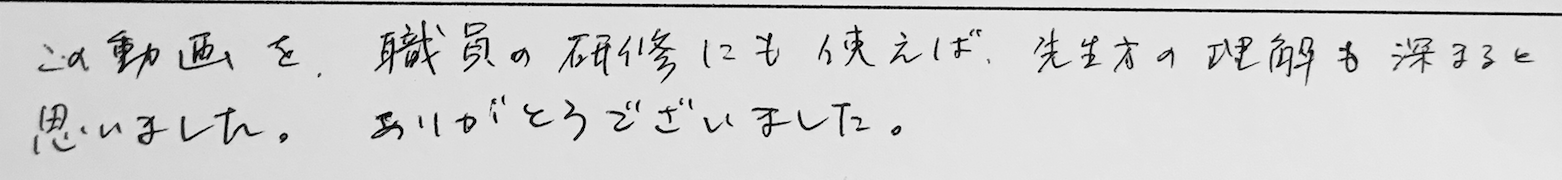 この動画を、職員の研修にも使えば、先生方の理解も深まると
思いました。ありがとうございました。